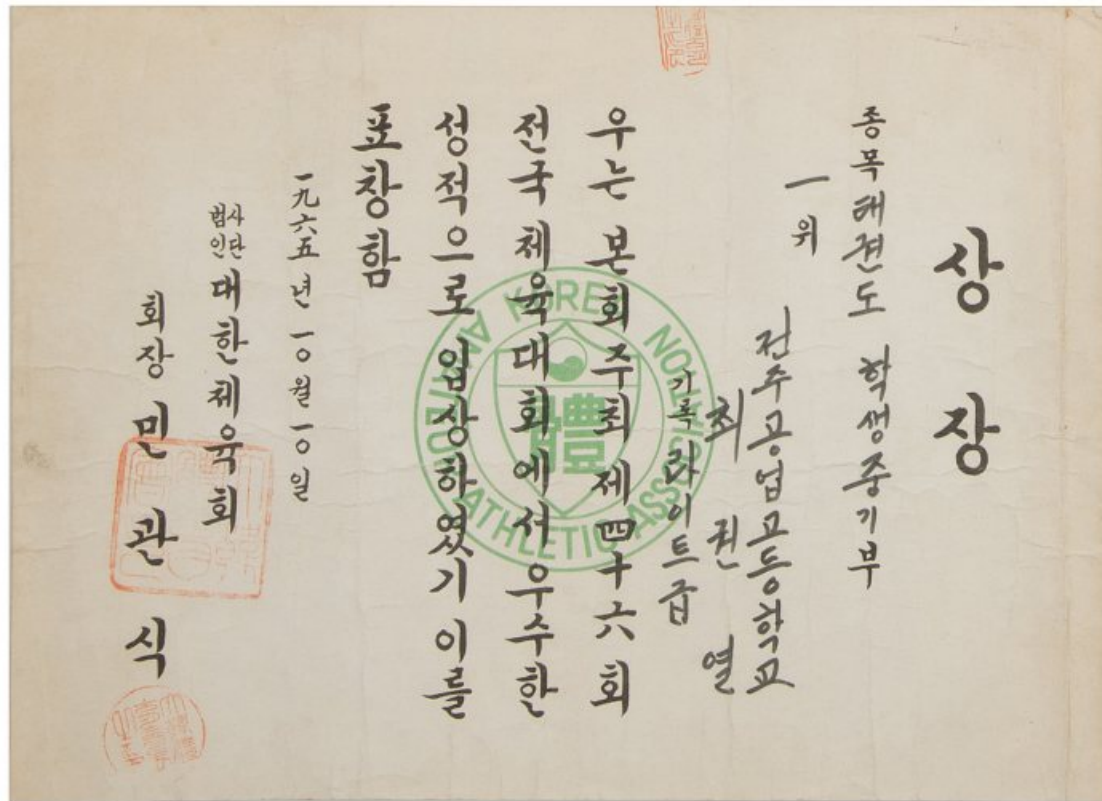 상장
종목 태권도 학생중기부
一위
전주공업고등학교
최권열
기록 라이트급
우는 본회 주최 제四十六회
전국체육대회에서 우수한
성적으로 입상하였기 이를
표창함
一九六五년 一○월 一○일
사단
법인
대한체육회
회장 민관식
KOREA AMATEUR ATHLETIC ASSOCIATION
體